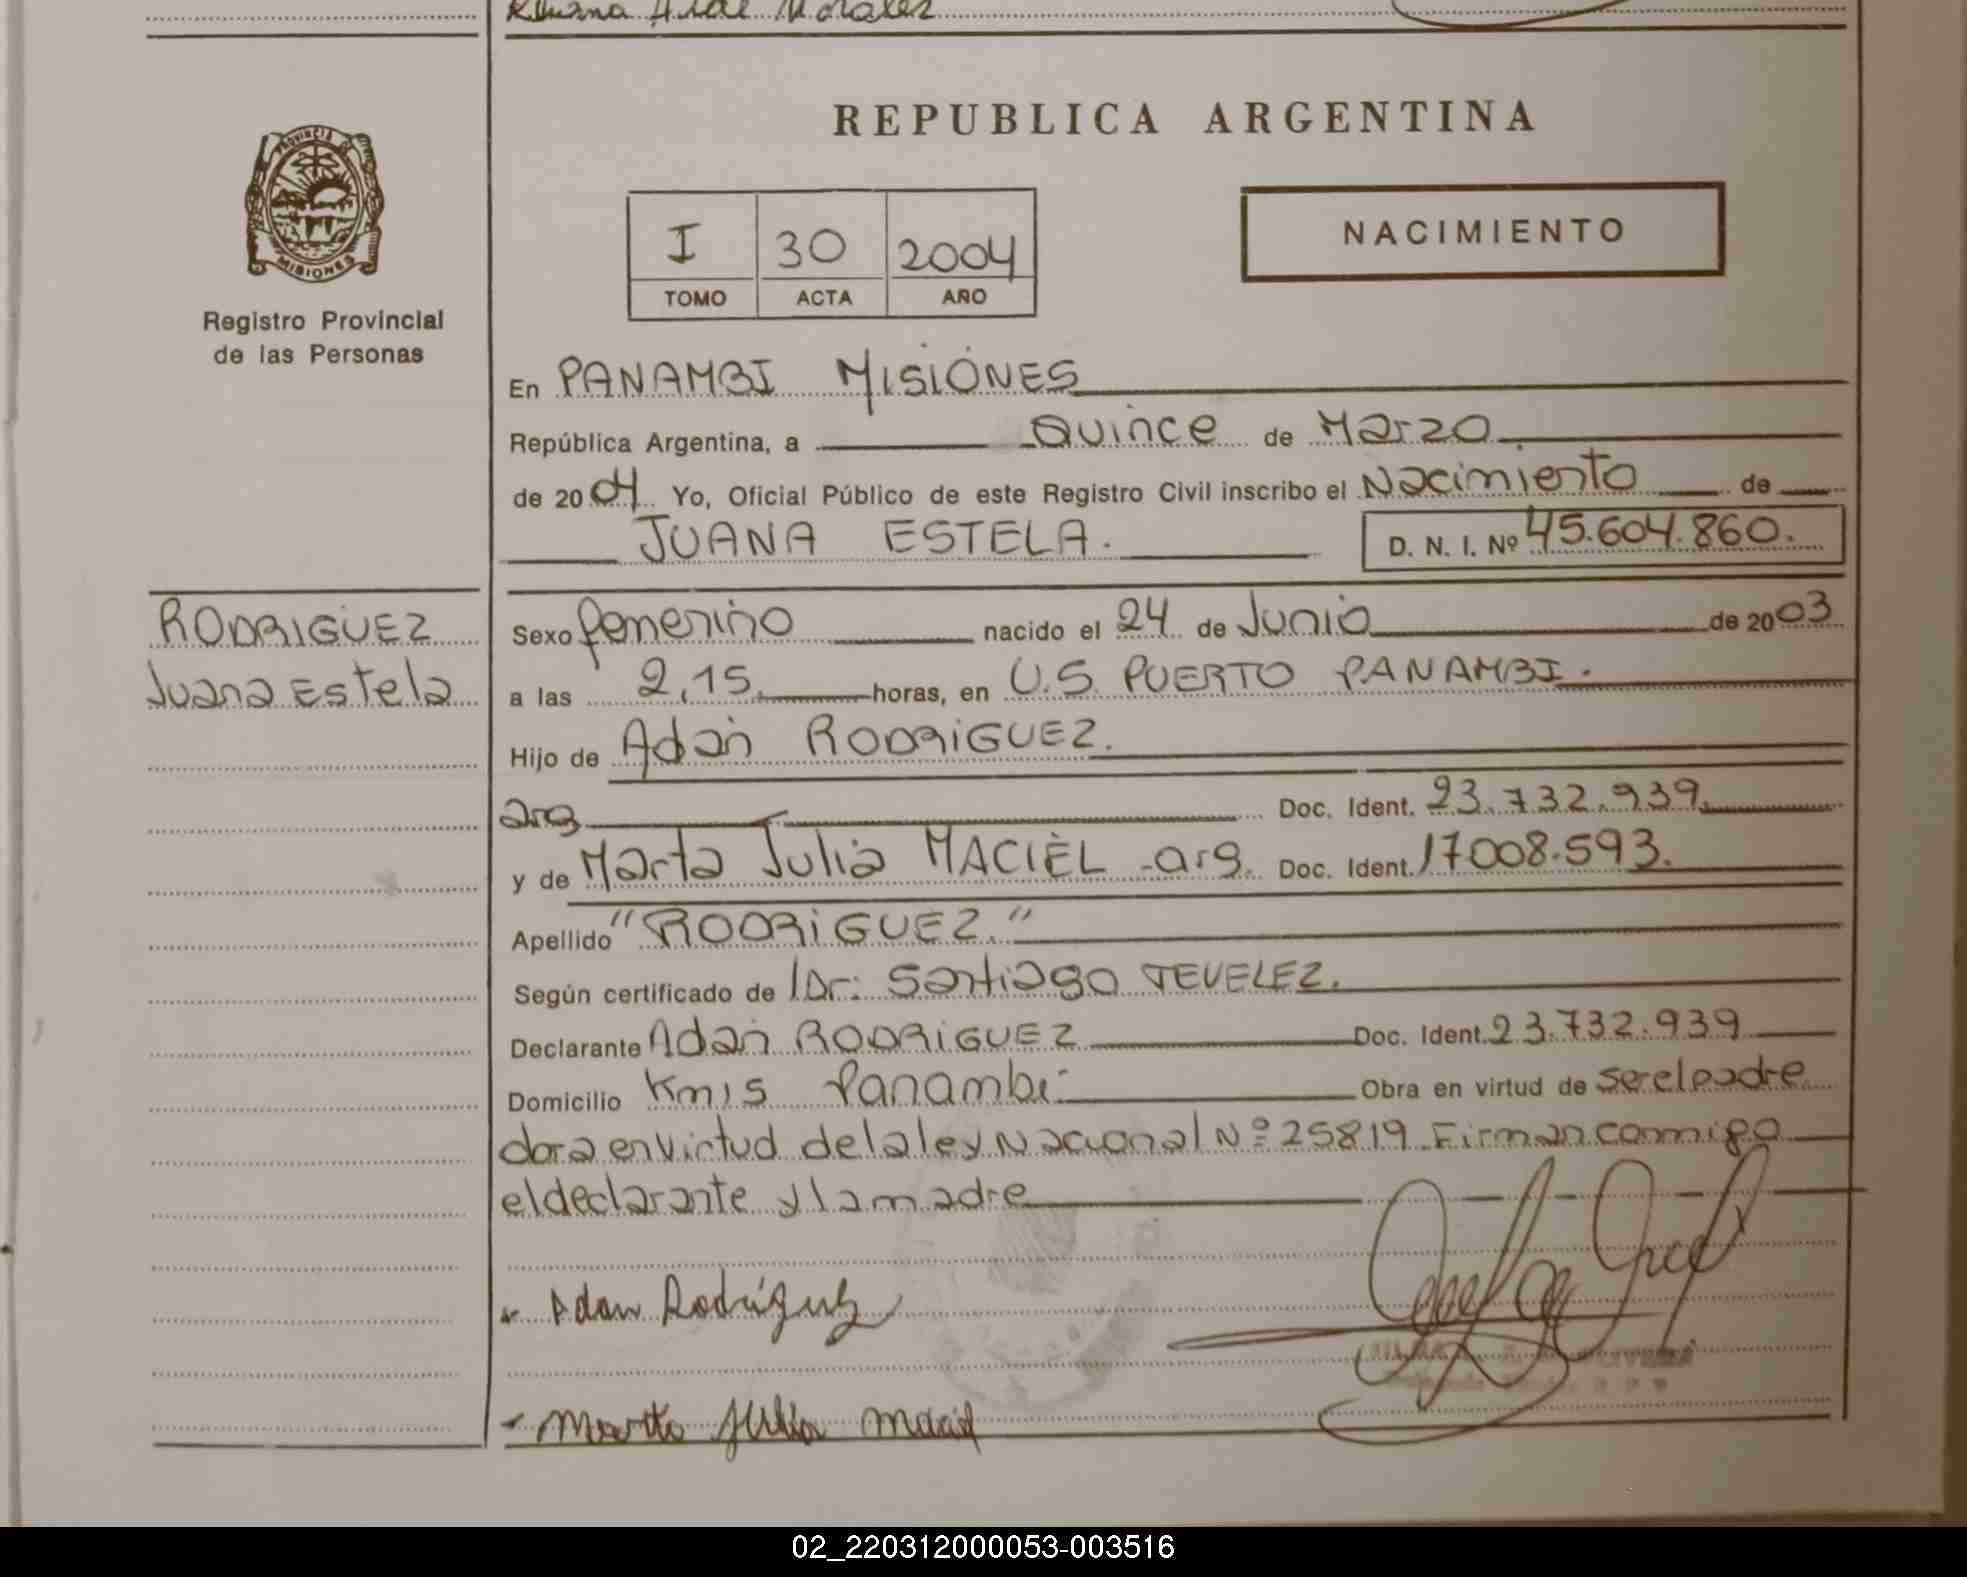 Morales
REPUBLICA ARGENTINA
PROVINCIA DE
MISIONES
I 30 2004
TOMO ACTA AÑO
NACIMIENTO
Registro Provincial
de las Personas
En PANAMBI MISIONES
República Argentina, a Quince de Marzo
de 2004 Yo, Oficial Público de este Registro Civil inscribo el Nacimiento de
JUANA ESTELA. D. N. I. Nº 45.604.860.
RODRIGUEZ
Juana Estela
Sexo femenino nacido el 24 de Junio de 2003
a las 2,15 horas, en U.S. PUERTO PANAMBI.
Hijo de Adan RODRIGUEZ.
arg Doc. Ident. 23.732.939
y de Marta Julia MACIEL - arg. Doc. Ident. 17008.593.
Apellido "RODRIGUEZ."
Según certificado de Dr: Santiago TEVELEZ.
Declarante Adan RODRIGUEZ Doc. Ident. 23.732.939
Domicilio Km 15 Panambi Obra en virtud de ser el padre
obra en virtud de la ley Nacional Nº 25819 Firman conmigo
el declarante y la madre
Adan Rodriguez
Marta Julia Maciel
02_220312000053-003516